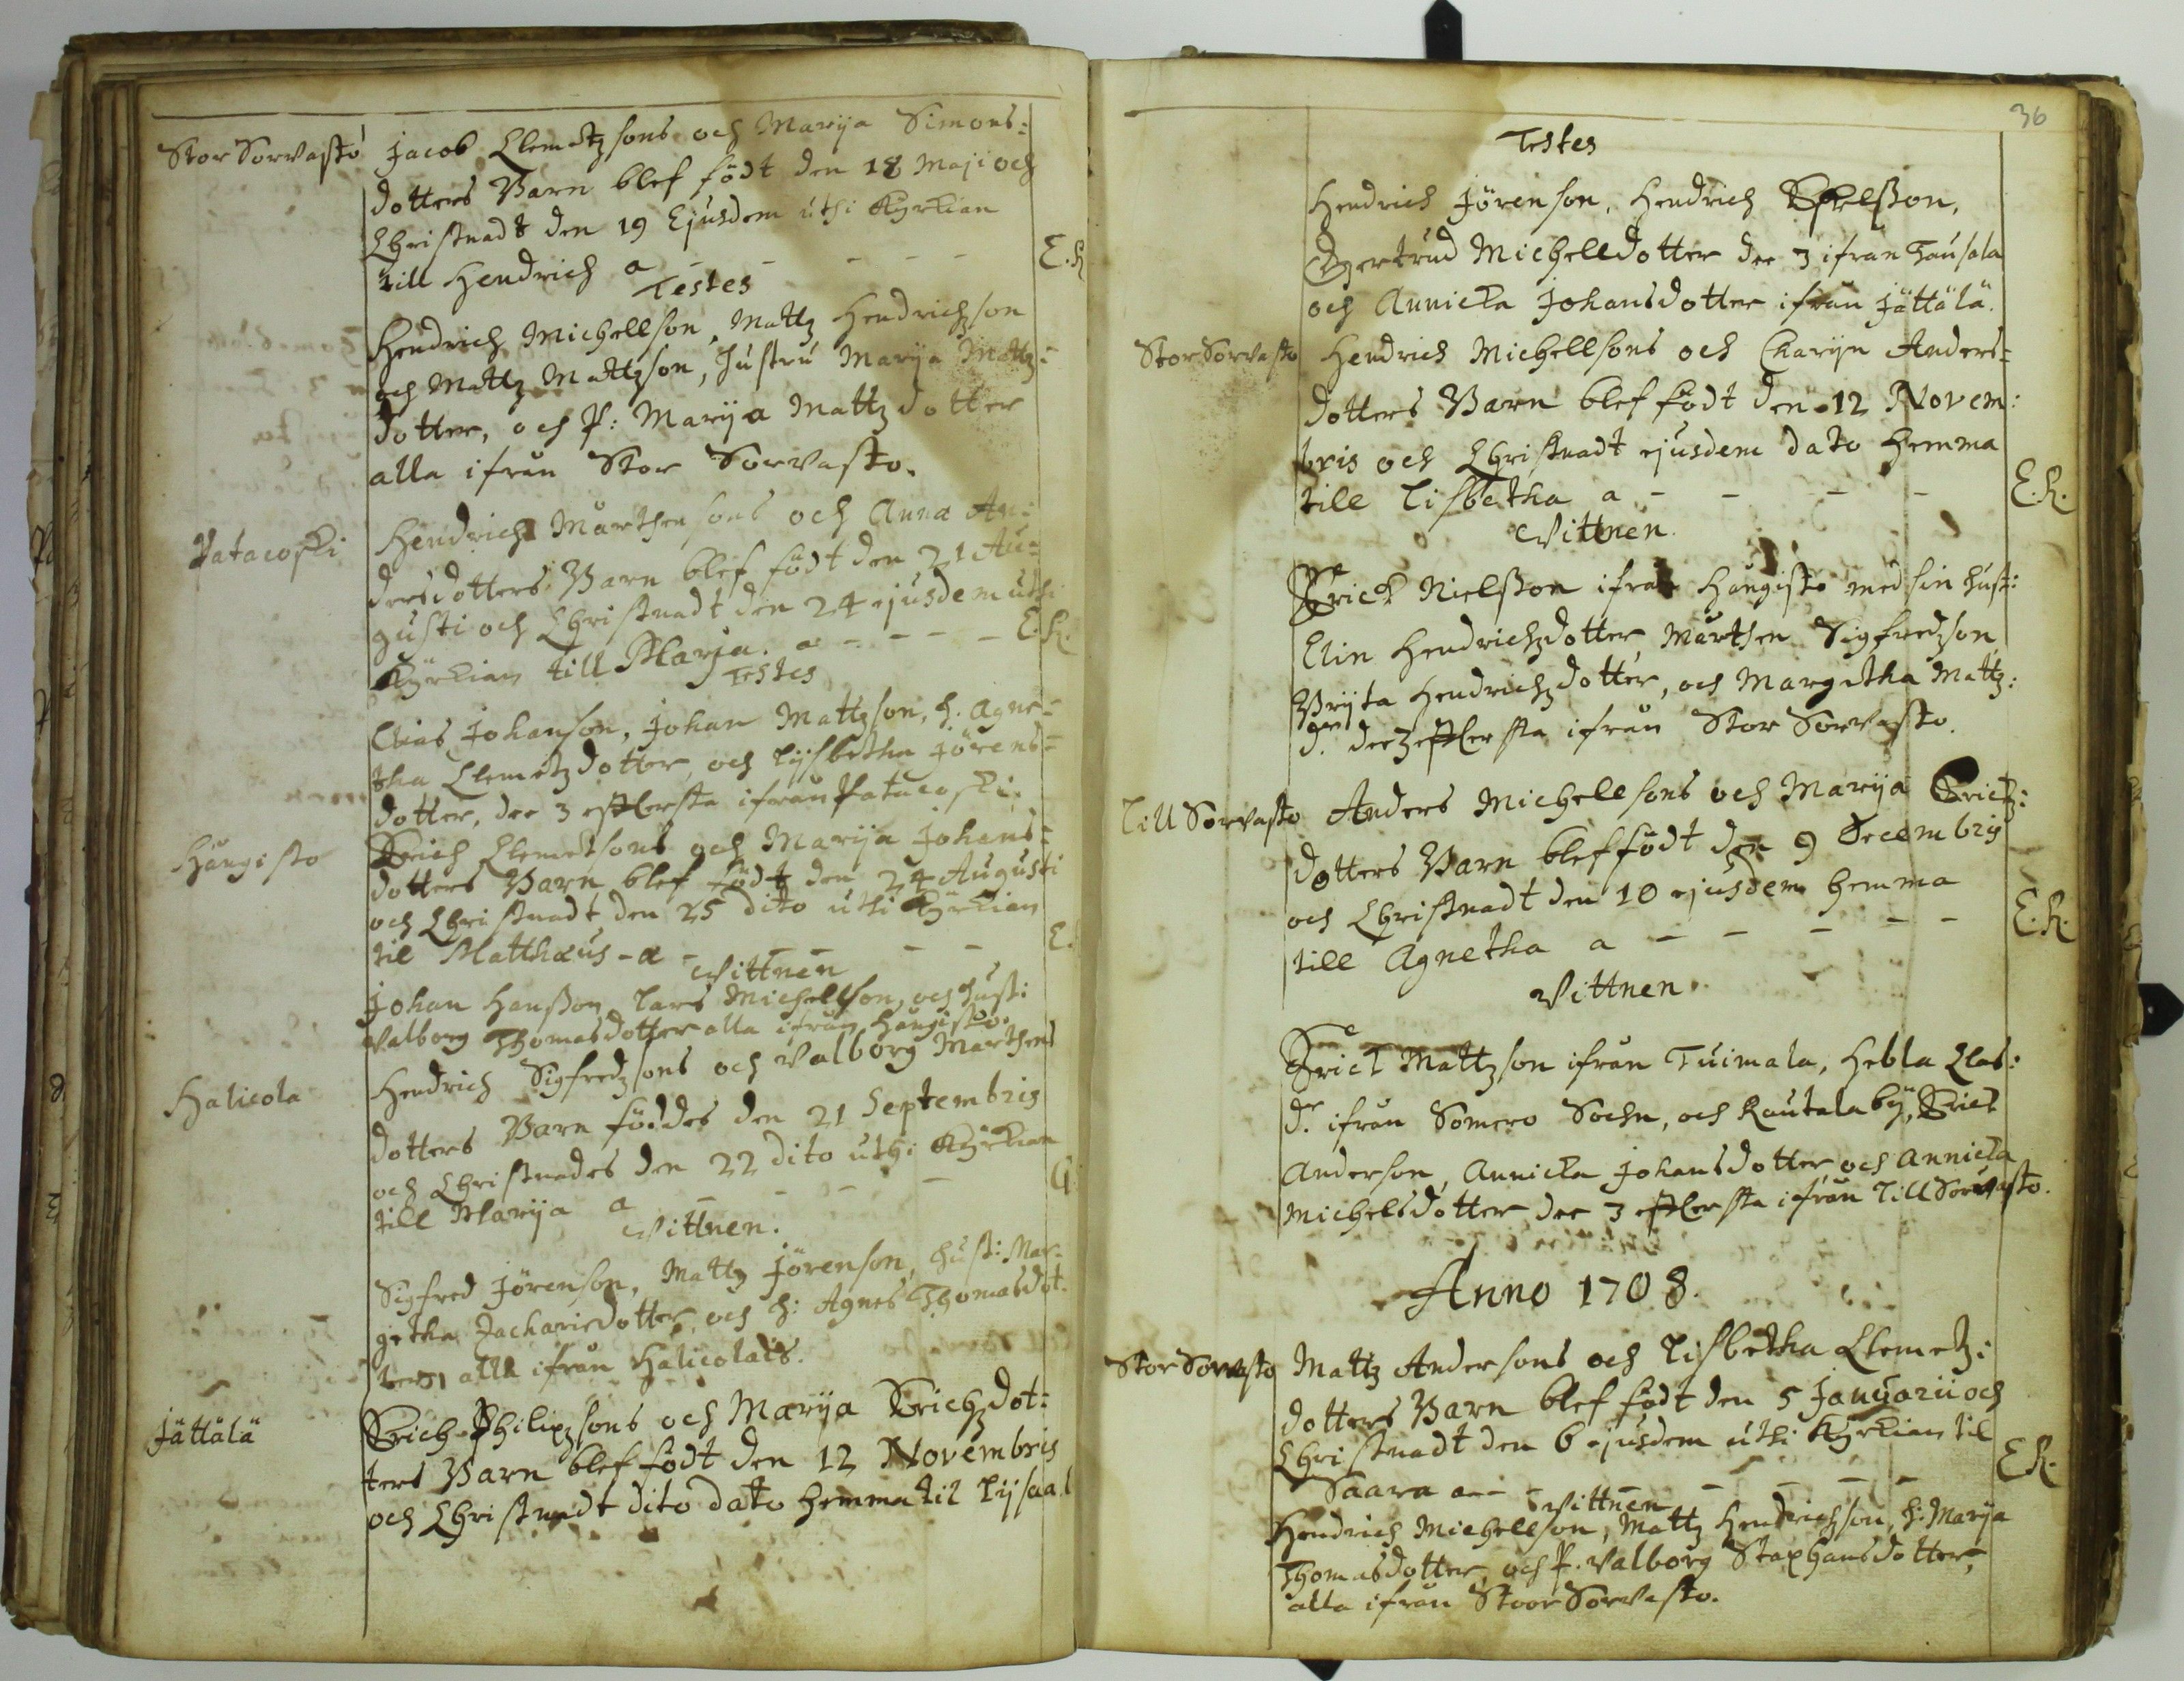 Stor Sorvasto Jacob Clemetzsons och Marija Simons=
dotters Barn blef födt den 18 Maji och
Christnadt den 19 Ejusdem uthi Kyrkian
till Hendrich a - - - - - E.R
Testes
Hendrich Michellson, Mattz Hendrichson
och Mattz Mattzson, hustru Marija Mattz=
dotter, och P: Marija Mattzdotter
alla ifrån Stor Sorvasto.
Patacoski Hendrich Mårthensons och Anna An=
dersdotters Barn blef födt den 21 Au=
gusti och Christnadt den 24 ejusdem uthi
Kyrkian till Marja. a - - - - E.R.
Testes
Elias Johanson, Johan Mattzson, h. Agne=
tha Clemetzdotter, och Lijsbetha Jörens=
dotter, dee 3 efftersta ifrån Patacoski.
Hångisto Erich Clemetsons och Marija Johans=
dotters Barn blef födt den 24 Augusti
och Christnadt den 25 dito uthi Kyrkian
til Matthæus - a - - - - - E.
Vittnen
Johan Hanßon, Lars Michellson, och hust:
Valborg Thomasdotter alla ifrån Hångisto.
Halicola Hendrich Sigfredzsons och Valborg Marthens
dotters Barn föddes den 21 Septembris
och Christnades den 22 dito uthi Kyrkian
till Marija a - - - - G
Vittnen.
Sigfred Jörenson, Mattz Jörenson, hust: Mar=
getha Zacharisdotter, och h: Agnes Thomasdot=
ter, alla ifrån Halicola.
Jättälä Erich Philipzsons och Marija Erichzdot=
ters Barn blef födt den 12 Novembris
och Christnadt dito dato hemma til Lijsa a
36
Testes
Hendrich Jörenson, Hendrich
Giertrud Michelldotter dee 3 ifrån Hausala
och Annicka Johansdotter ifrån Jättälä.
Stor Sorvasto Hendrich Michellsons och Charijn Anders=
dotters Barn blef födt den 12 Novem:
bris och Christnadt ejusdem dato hemma
till Lisbetha a - - - - E.R.
Vittnen.
Erich Nielsson ifrån Hångisto med sin hust:
Elin Hendrichzdotter, Mårthen Sigfredzson,
Brijta Hendrichzdotter, och Margetha Mattz:
dr. dee 3 efftersta ifrån Stor Sorvasto.
Lill Sorvasto Anders Michellsons och Marija Erichz:
dotters Barn blef födt den 9 Decembris
och Christnadt den 10 ejusdem hemma
till Agnetha a - - - - - E.R.
Vittnen
Erich Mattzson ifrån Tuimala, Hebla Clas:
dr. ifrån Somero Sochn, och Rautala bÿ, Erich
Anderson, Annicka Johansdotter och Annicka
Michelsdotter dee 3 efftersta ifrån Lill Sorvasto.
Anno 1708.
Stor Sorvasto Mattz Andersons och Lisbetha Clemetz:
dotters Barn blef födt den 5 Januarii och
Christnadt den 6 ejusdem uthi Kyrkian til
Saara a - - - - - - E.R.
Vittnen
Hendrich Michellson, Mattz Hendrichson, h: Marija
Thomasdotter, och P. Valborg Staphansdotter,
alla ifrån Stoor Sorvasto.